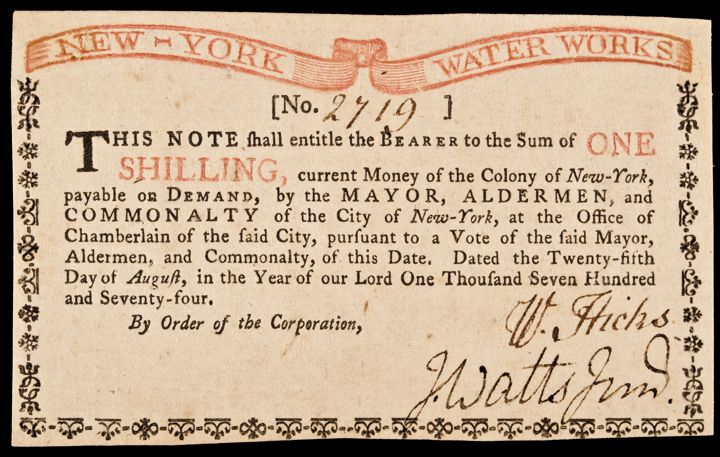 NEW-YORK WATER WORKS
[No. 2719 ]
THIS NOTE ſhall entitle the BEARER to the Sum of ONE
SHILLING, current Money of the Colony of New-York,
payable on DEMAND, by the MAYOR, ALDERMEN, and
COMMONALTY of the City of New-York, at the Office of
Chamberlain of the ſaid City, purſuant to a Vote of the ſaid Mayor,
Aldermen, and Commonalty, of this Date. Dated the Twenty-fifth
Day of Auguſt, in the Year of our Lord One Thouſand Seven Hundred
and Seventy-four.
By Order of the Corporation,
W. Hicks
J. Watts Jund.